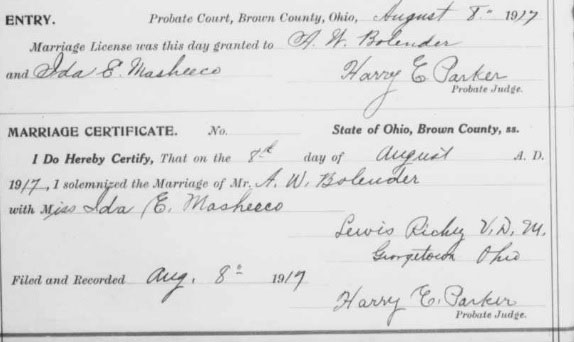 ENTRY. Probate Court, Brown County, Ohio, August 8" 1917
Marriage License was this day granted to A. W. Bolender
and Ida E. Masheeco Harry E Parker
Probate Judge.
MARRIAGE CERTIFICATE. No. State of Ohio, Brown County, ss.
I Do Hereby Certify, That on the 8th day of August A. D.
1917, I solemnized the Marriage of Mr. A. W. Bolender
with Miss Ida E. Masheeco
Lewis Richy V. D. M.
Georgetown Ohio
Filed and Recorded Aug. 8" 1917
Harry E. Parker
Probate Judge.